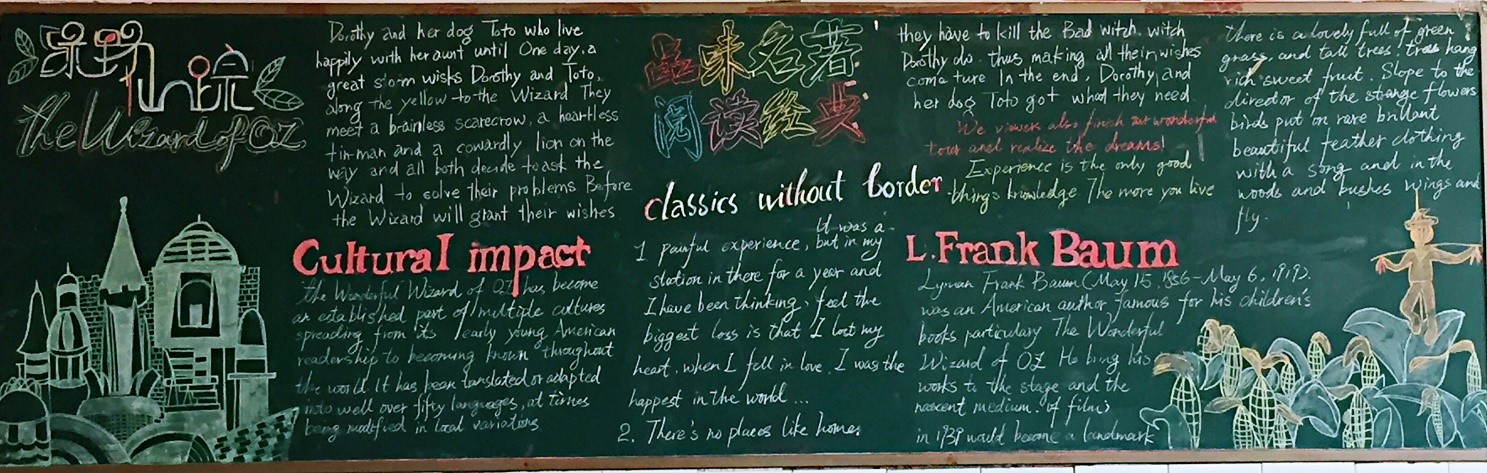 绿野仙踪
the Wizard of OZ
Dorothy and her dog Toto who live
happily with her aunt until One day, a
great storm wisks Dorothy and Toto,
along the yellow to the Wizard They
meet a brainless scarecrow, a heartless
tin-man and a cowardly lion on the
way and all both decide to ask the
Wizard to solve their problems Before
the Wizard will grant their wishes
品味名著
阅读经典
classics without border
they have to kill the Bad witch. witch
Dorothy do. thus making all their wishes
come ture In the end, Dorothy, and
her dog Toto got what they need.
We viewers also finish our wonderful
tour and realize the dreams!
Experience is the only good
thing's knowledge The more you live
there is a lovely full of green
grass, and tall trees. trees hang
rich sweet fruit. Slope to the
director of the strange flowers
birds put on rare brillant
beautiful feather clothing
with a song and in the
woods and bushes wings and
fly.
Cultural impact
the Wonderful Wizard of OZ has become
an established part of multiple cultures
spreading from its early young American
readership to becoming known throughout
the world It has been translated or adapted
into well over fifty languages, at times
being modified in local variations
It was a
1 painful experience, but in my
station in there for a year and
I have been thinking, feel the
biggest loss is that I lost my
heart, when I fell in love, I was the
happest in the world ...
2. There's no places like home.
L. Frank Baum
Lyman Frank Baum (May 15, 1856-May 6, 1919).
was an American author famous for his children's
books particulary The Wonderful
Wizard of OZ He bring his
works to the stage and the
nascent medium. of film,
in 1939 would become a landmark